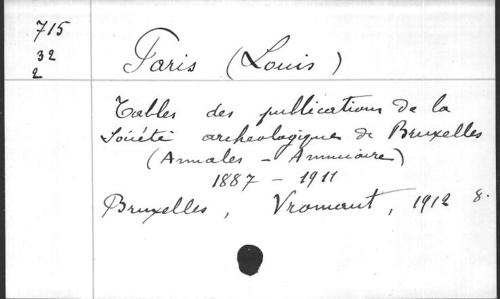 715
32
2
Paris (Louis)
Tables des publications de la
Société archéologique de Bruxelles
(Annales - Annuaire)
1887 - 1911
Bruxelles, Vromant, 1912 8.